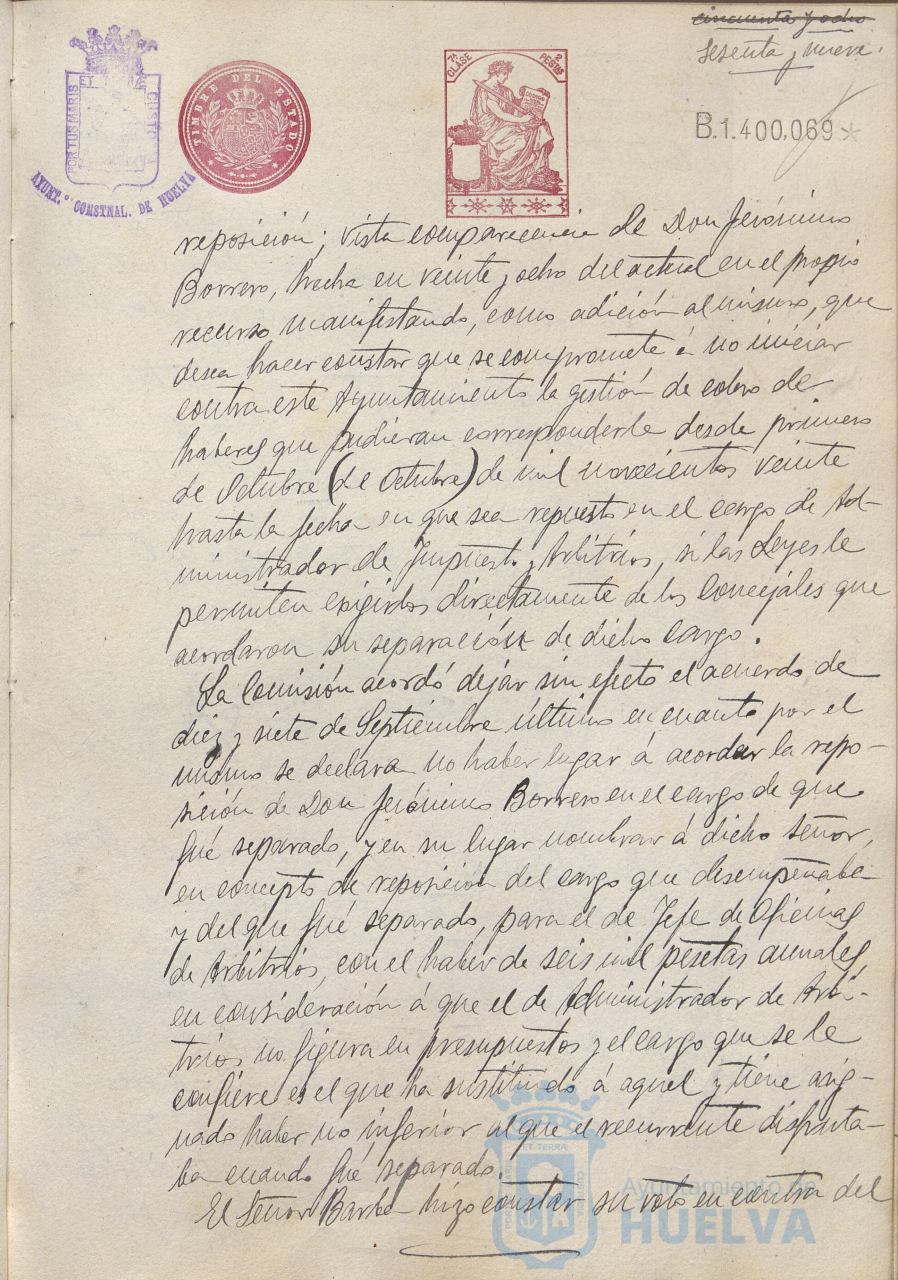 cincuenta y ocho
Sesenta y nueve.
PORTUS MARIS ET CUSTO
AYUNT.º CONSTNAL. DE HUELVA
TIMBRE DEL ESTADO
7ª CLASE 2 PESTAS
B.1.400,069*
reposición; vista comparecencia de Don Jerónimo
Borrero, hecha en veinte y ocho del actual en el propio
recurso manifestando, como adición al mismo, que
desea hacer constar que se compromete á no iniciar
contra este Ayuntamiento la gestión de cobro de
haberes que pudieran corresponderle desde primero
de Octubre (de Octubre) de mil novecientos veinte
hasta la fecha en que sea repuesto en el cargo de Ad-
ministrador de Impuestos y Arbitrios, si las Leyes le
permiten exigirlos directamente de los Concejales que
acordaron su separación de dicho cargo.
La Comisión acordó dejar sin efecto el acuerdo de
diez y siete de Septiembre último en cuanto por el
mismo se declara no haber lugar á acordar la repo-
sición de Don Jerónimo Borrero en el cargo de que
fué separado, y en su lugar nombrar á dicho señor,
en concepto de reposición del cargo que desempeñaba
y del que fué separado, para el de Jefe de Oficinas
de Arbitrios, con el haber de seis mil pesetas anuales
en consideración á que el de Administrador de Arbi-
trios no figura en presupuestos y el cargo que se le
confiere es el que ha sustituido á aquel y tiene asig-
nado haber no inferior al que el recurrente disfruta-
ba cuando fué separado.
El Señor Barba hizo constar su voto en contra del
Ayuntamiento de
HUELVA